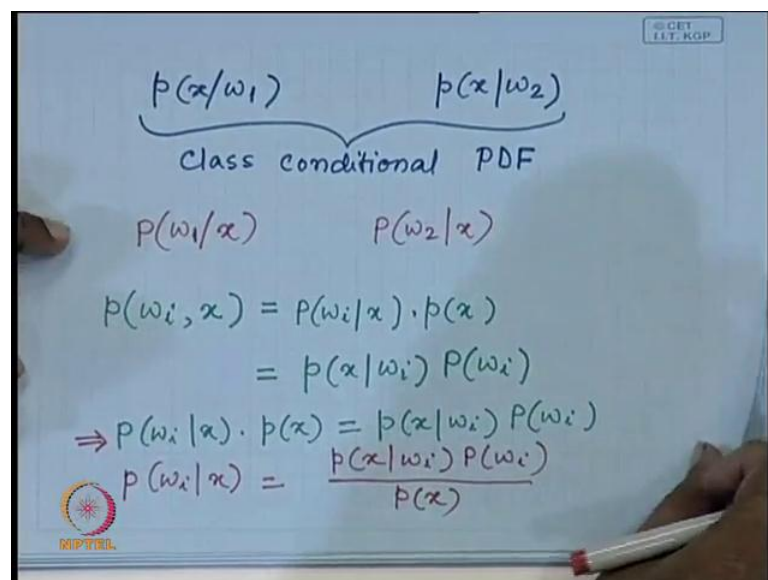 © CET
I.I.T. KGP
p(x/ω₁) p(x|ω₂)
Class conditional PDF
P(ω₁/x) P(ω₂|x)
p(ωᵢ, x) = P(ωᵢ|x).p(x)
= p(x|ωᵢ) P(ωᵢ)
⇒ P(ωᵢ|x). p(x) = p(x|ωᵢ) P(ωᵢ)
p(ωᵢ|x) = p(x|ωᵢ) P(ωᵢ)
p(x)
NPTEL